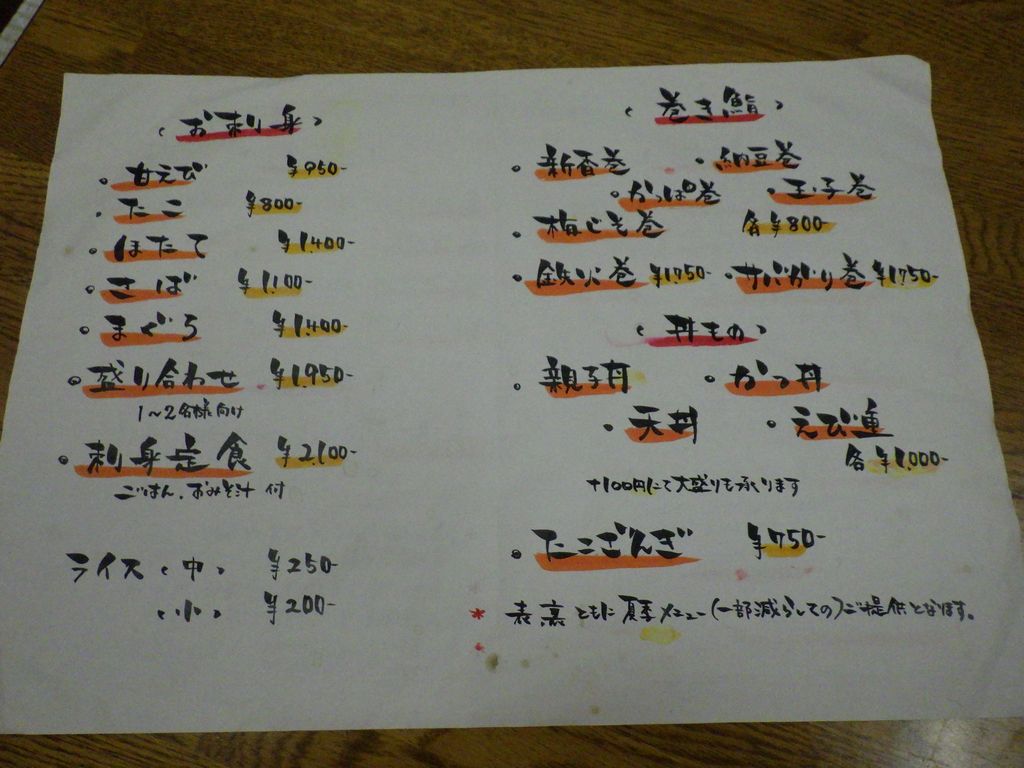 (お刺り身)
・甘えび ¥950-
・たこ ¥800-
・ほたて ¥1,400-
・さば ¥1,100-
・まぐろ ¥1,400-
・盛り合わせ ¥1,950-
1～2名様向け
・刺り身定食 ¥2,100-
ごはん、おみそ汁付
ライス(中) ¥250-
(小) ¥200-
(巻き鮨)
・新香巻 ・納豆巻
・かっぱ巻 ・玉子巻
・梅じそ巻 各¥800-
・鉄火巻 ¥1,750- ・サバがり巻 ¥1,750-
(丼もの)
・親子丼 ・かつ丼
・天丼 ・えび重
各¥1,000-
+100円にて大盛りも承ります
・たこざんぎ ¥750-
* 表裏ともに夏季メニュー(一部減らしての)ご提供となります。
*